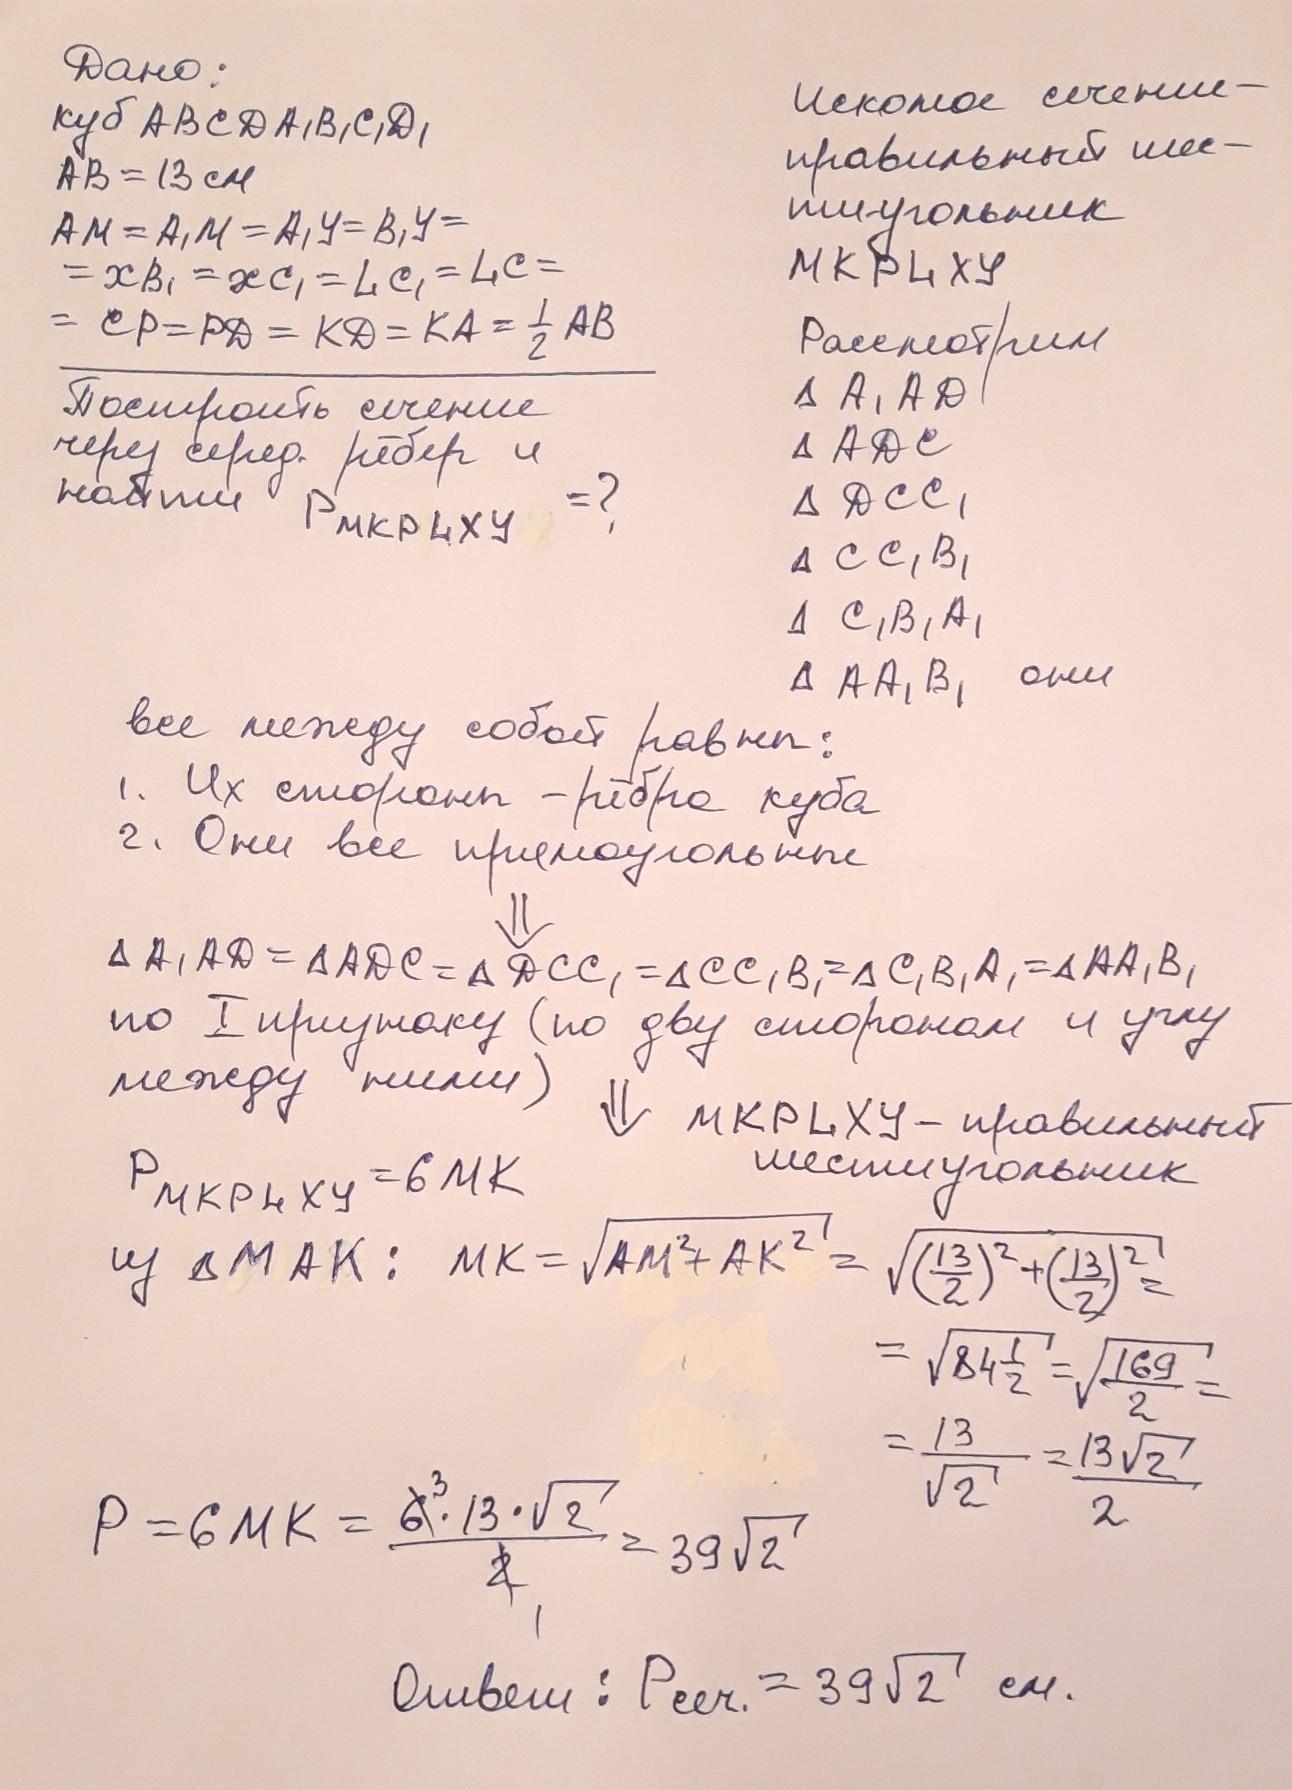 Дано:
куб ABCDA₁B₁C₁D₁
AB = 13 см
AM = A₁M = A₁Y = B₁Y =
= XB₁ = XC₁ = LC₁ = LC =
= CP = PD = KD = KA = 1/2 AB
Построить сечение
через серед. рёбер и
найти P MKPLXY = ?
Искомое сечение –
правильный шес-
тиугольник
MKPLXY
Рассмотрим
Δ A₁AD
Δ ADC
Δ DCC₁
Δ CC₁B₁
Δ C₁B₁A₁
Δ AA₁B₁ они
все между собой равны:
1. Их стороны – рёбра куба
2. Они все прямоугольные
⇓
Δ A₁AD = Δ ADC = Δ DCC₁ = Δ CC₁B₁ = Δ C₁B₁A₁ = Δ AA₁B₁
по I признаку (по двум сторонам и углу
между ними) ⇓ MKPLXY – правильный
шестиугольник
P MKPLXY = 6MK
из Δ MAK: MK = √(AM² + AK²) = √((13/2)² + (13/2)²) =
= √(84 1/2) = √(169/2) =
= 13/√2 = 13√2/2
P = 6MK = 6³·13·√2 / 2₁ = 39√2
Ответ: Pсеч. = 39√2 см.